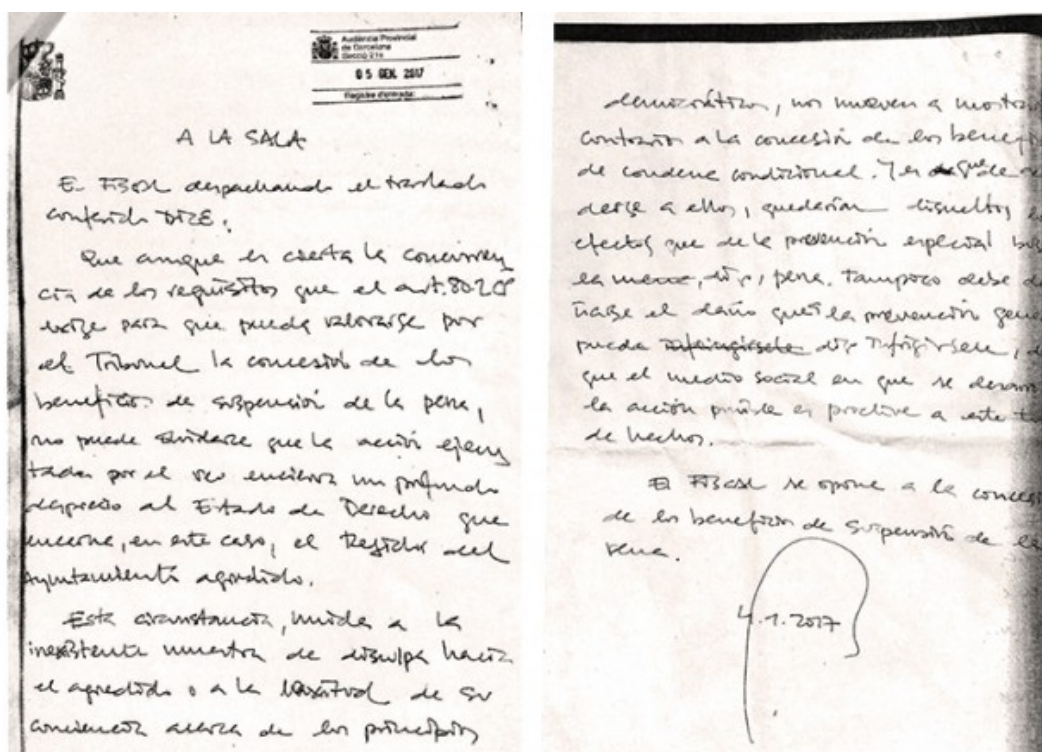 Audiència Provincial
de Barcelona
Secció 21a
05 GEN. 2017
Registre d'entrada
A LA SALA
El Fiscal despachando el traslado
conferido DICE:
Que aunque es cierta la concurren
cia de los requisitos que el art. 80.2 CP
exige para que pueda valorarse por
el Tribunal la concesión de los
beneficios de suspensión de la pena,
no puede olvidarse que la acción ejecu
tada por el reo encierra un profundo
desprecio al Estado de Derecho que
encarna, en este caso, el Regidor del
Ayuntamiento agredido.
Esta circunstancia, unida a la
inexistente muestra de disculpa hacia
el agredido o a la laxitud de su
conciencia acerca de los principios
democráticos, nos mueven a mostra
contrario a la concesión de los benefi
de condena condicional. Y es que de
derse a ellos, quedarían disueltos
efectos que de la prevención especial bus
la mera, digo, pena. Tampoco debe
ñarse el daño que a la prevención gene
pueda infringirsele digo infligirsele,
que el medio social en que se desarro
la acción punible es proclive a este
de hechos.
El Fiscal se opone a la conces
de los beneficios de suspensión de la
pena.
4.1.2017